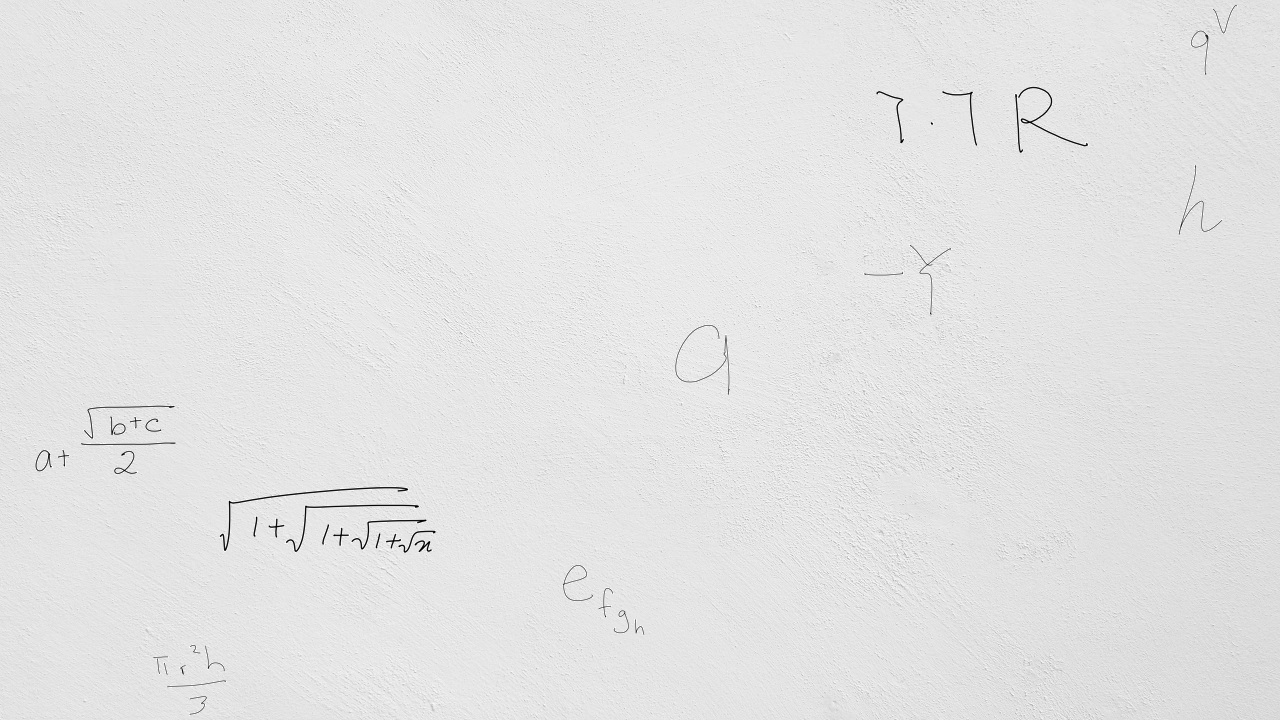 q^v
7.7 R
h
-Y
a
a + \frac{\sqrt{b+c}}{2}
\sqrt{1+\sqrt{1+\sqrt{1+\sqrt{x}}}}
e_{f_{g_h}}
\frac{\pi r^2 h}{3}